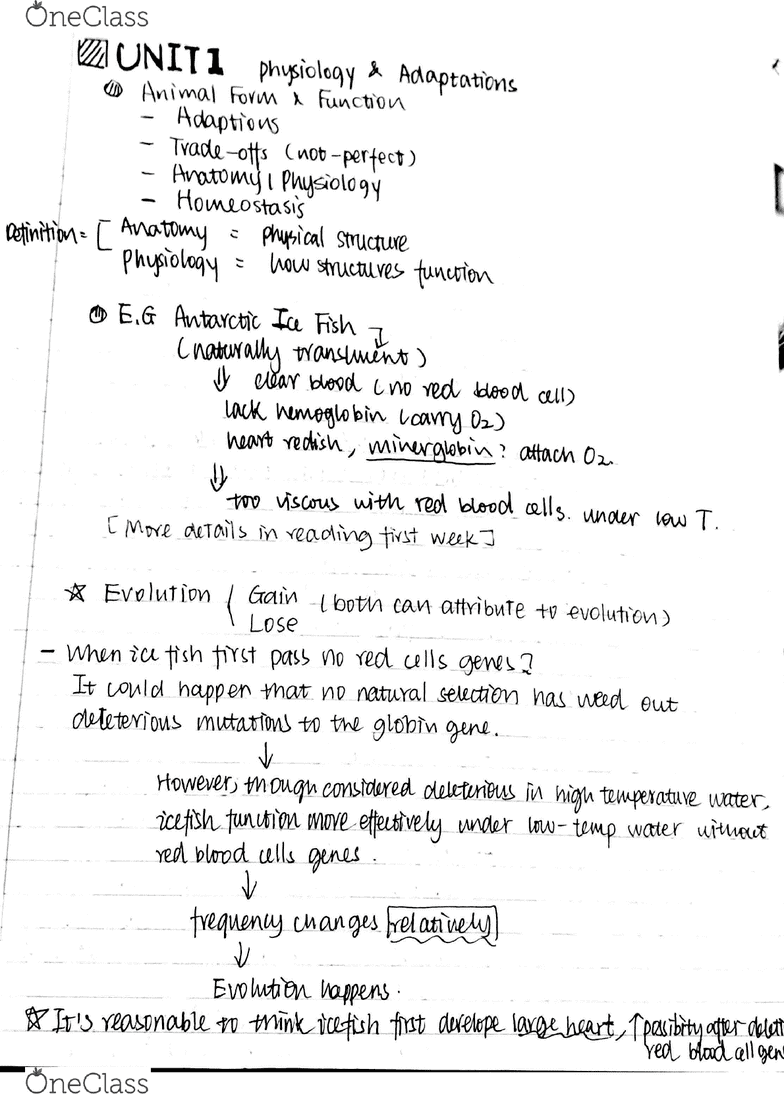 OneClass
UNIT1 Physiology & Adaptations
Animal Form & Function
- Adaptions
- Trade-offs (not-perfect)
- Anatomy | Physiology
- Homeostasis
Definition = [ Anatomy = physical structure
Physiology = how structures function
E.G Antarctic Ice Fish
(naturally translument)
⇓ clear blood (no red blood cell)
lack hemoglobin (carry O2)
heart redish, minerglobin? attach O2.
⇓
too viscous with red blood cells. under low T.
[More details in reading first week]
☆ Evolution { Gain (both can attribute to evolution)
Lose
- When ice fish first pass no red cells genes?
It could happen that no natural selection has weed out
deleterious mutations to the globin gene.
↓
However, though considered deleterious in high temperature water,
icefish function more effectively under low-temp water without
red blood cells genes.
↓
frequency changes relatively
↓
Evolution happens.
☆ It's reasonable to think icefish first develope large heart, ↑ posibirty after
red blood cell gen
OneClass